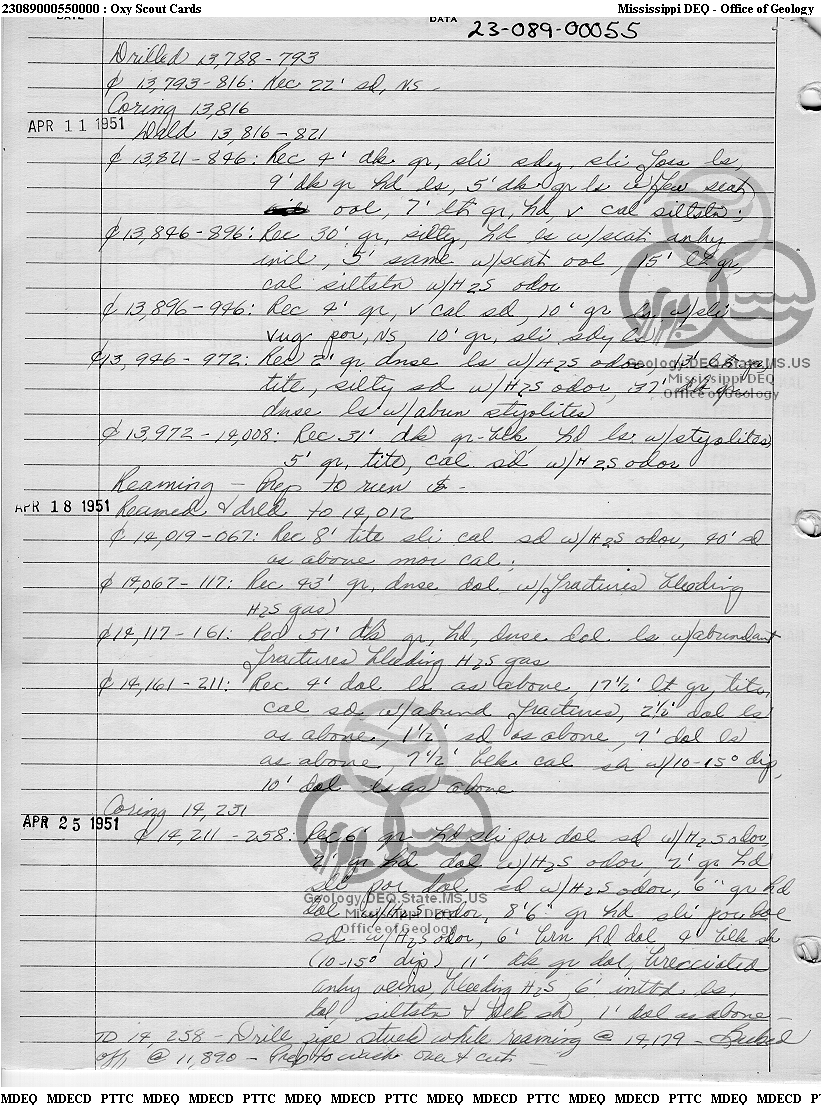 23089000550000 : Oxy Scout Cards Mississippi DEQ - Office of Geology
DATE DATA 23-089-00055
Drilled 13,788-793
₵ 13,793-816: Rec 22' sd, NS -
Coring 13,816
APR 11 1951
Drld 13,816-821
₵ 13,821-846: Rec 4' dk gr, sli sdy, sli foss ls,
9' dk gr hd ls, 5' dk gr ls w/few scat
ool, 7' lt gr, hd, v cal siltstn;
₵ 13,846-896: Rec 30' gr, silty, hd ls w/scat anhy
incl, 5' same w/scat ool, 15' lt gr,
cal siltstn w/H2S odor
₵ 13,896-946: Rec 4' gr, v cal sd, 10' gr ls w/sli
vug por, NS, 10' gr, sli sdy ls
₵ 13,946-972: Rec 2' gr dnse ls w/H2S odor, 13' lt gr,
tite, silty sd w/H2S odor, 37' dk gr
dnse ls w/abun styolites
₵ 13,972-14,008: Rec 31' dk gr-blk, hd ls w/styolites,
5' gr, tite, cal sd w/H2S odor
Reaming - Prep to run
APR 18 1951
Reamed & drld to 14,012
₵ 14,019-067: Rec 8' tite sli cal sd w/H2S odor, 40' sd
as above mor cal;
₵ 14,067-117: Rec 43' gr, dnse dol w/fractures bleeding
H2S gas
₵ 14,117-161: Rec 51' dk gr, hd, dnse dol ls w/abundant
fractures bleeding H2S gas
₵ 14,161-211: Rec 4' dol ls as above, 17½' lt gr, tite,
cal sd w/abund fractures, 2½' dol ls
as above, 1½' sd as above, 7' dol ls
as above, 7½' blk cal sh w/10-15° dip,
10' dol ls as above
Coring 14,251
APR 25 1951
₵ 14,211-258: Rec 6' gr hd sli por dol sd w/H2S odor,
2' gr hd dol w/H2S odor, 2' gr hd
sli por dol sd w/H2S odor, 6" gr hd
dol w/H2S odor, 8'6" gr hd sli por dol
sd w/H2S odor, 6' brn hd dol, 4' blk sh
(10-15° dip), 11' dk gr dol, brecciated
anhy veins, bleeding H2S, 6' intbd ls,
dol siltstn & blk sh, 1' dol as above -
TD 14,258 - Drill pipe stuck while reaming @ 14,179 - Backed
off @ 11,890 - Prep to wash over & cut -
Geology.DEQ.State.MS.US
Mississippi DEQ
Office of Geology
Geology.DEQ.State.MS.US
Mississippi DEQ
Office of Geology
MDEQ MDECD PTTC MDEQ MDECD PTTC MDEQ MDECD PTTC MDEQ MDECD PTTC MDEQ MDECD PTTC MDEQ MDECD P